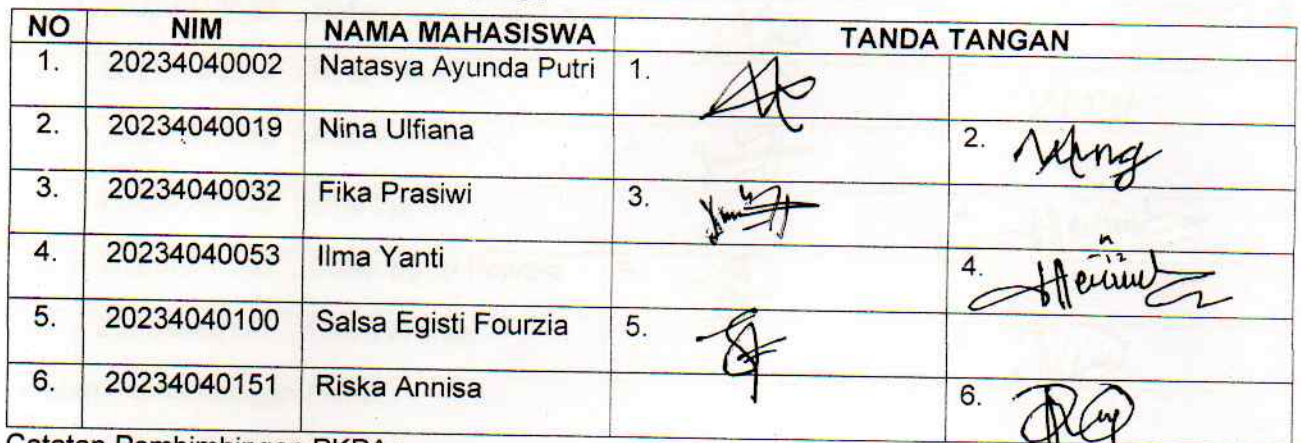 NO NIM NAMA MAHASISWA TANDA TANGAN
1. 20234040002 Natasya Ayunda Putri 1.
2. 20234040019 Nina Ulfiana 2.
3. 20234040032 Fika Prasiwi 3.
4. 20234040053 Ilma Yanti 4.
5. 20234040100 Salsa Egisti Fourzia 5.
6. 20234040151 Riska Annisa 6.
Catatan Pembimbingan